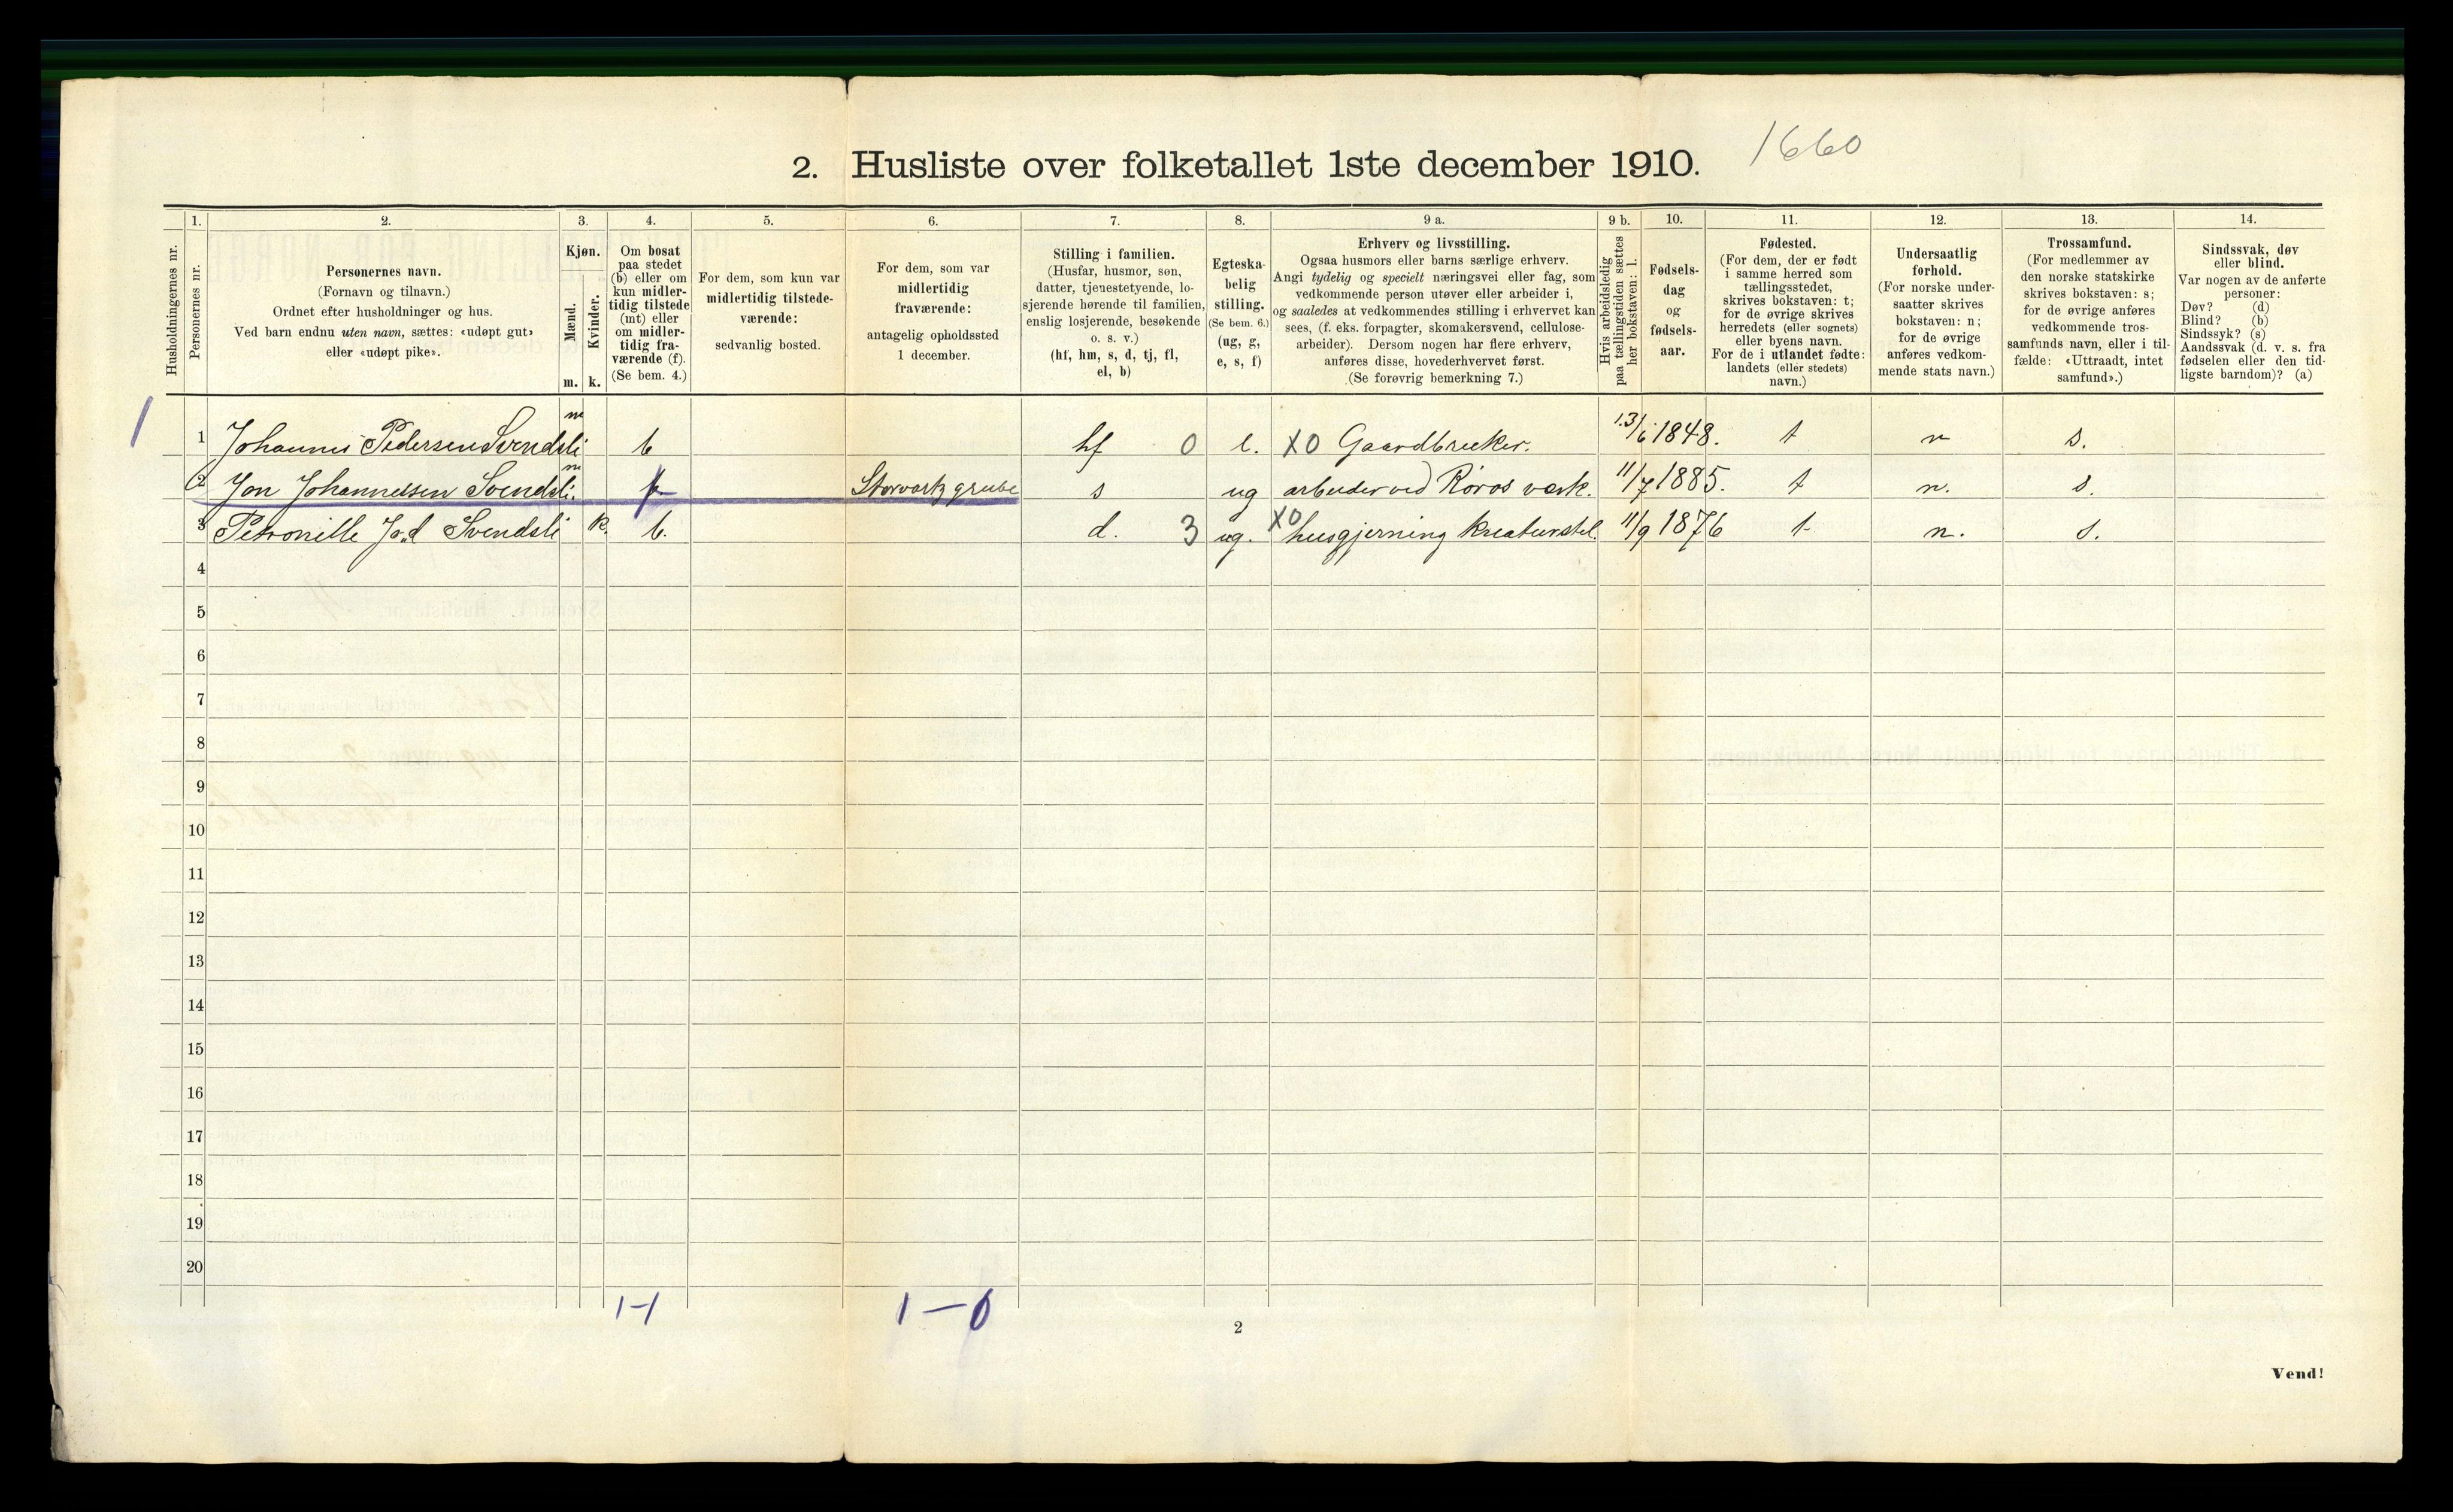 1660
2. Husliste over folketallet 1ste december 1910.
Husholdningernes nr.
1.
Personernes nr.
2.
Personernes navn.
(Fornavn og tilnavn.)
Ordnet efter husholdninger og hus.
Ved barn endnu uten navn, sættes: «udøpt gut»
eller «udøpt pike».
3.
Kjøn.
Mænd.
Kvinder.
m. k.
4.
Om bosat
paa stedet
(b) eller om
kun midler-
tidig tilstede
(mt) eller
om midler-
tidig fra-
værende (f).
(Se bem. 4.)
5.
For dem, som kun var
midlertidig tilstede-
værende:
sedvanlig bosted.
6.
For dem, som var
midlertidig
fraværende:
antagelig opholdssted
1 december.
7.
Stilling i familien.
(Husfar, husmor, søn,
datter, tjenestetyende, lo-
sjerende hørende til familien,
enslig losjerende, besøkende
o. s. v.)
(hf, hm, s, d, tj, fl,
el, b)
8.
Egteska-
belig
stilling.
(Se bem. 6.)
(ug, g,
e, s, f)
9 a.
Erhverv og livsstilling.
Ogsaa husmors eller barns særlige erhverv.
Angi tydelig og specielt næringsvei eller fag, som
vedkommende person utøver eller arbeider i,
og saaledes at vedkommendes stilling i erhvervet kan
sees, (f. eks. forpagter, skomakersvend, cellulose-
arbeider). Dersom nogen har flere erhverv,
anføres disse, hovederhvervet først.
(Se forøvrig bemerkning 7.)
9 b.
Hvis arbeidsledig
paa tællingstiden sættes
her bokstaven: l.
10.
Fødsels-
dag
og
fødsels-
aar.
11.
Fødested.
(For dem, der er født
i samme herred som
tællingsstedet,
skrives bokstaven: t;
for de øvrige skrives
herredets (eller sognets)
eller byens navn.
For de i utlandet fødte:
landets (eller stedets)
navn.)
12.
Undersaatlig
forhold.
(For norske under-
saatter skrives
bokstaven: n;
for de øvrige
anføres vedkom-
mende stats navn.)
13.
Trossamfund.
(For medlemmer av
den norske statskirke
skrives bokstaven: s;
for de øvrige anføres
vedkommende tros-
samfunds navn, eller i til-
fælde: «Uttraadt, intet
samfund».)
14.
Sindssvak, døv
eller blind.
Var nogen av de anførte
personer:
Døv? (d)
Blind? (b)
Sindssyk? (s)
Aandssvak (d. v. s. fra
fødselen eller den tid-
ligste barndom)? (a)
1 1 Johannes Pedersen Svendsli m b hf 0 e. X0 Gaardbruker. 13/6 1848. t n s.
2 Jon Johannessen Svendsli. m f Storvartz grube s ug arbeider ved Røros værk. 11/7 1885. t n. s.
3 Petronille Jo.d Svendsli k. b. d. 3 ug. X0 husgjerning kreaturstel. 11/9 1876 t n. s.
4
5
6
7
8
9
10
11
12
13
14
15
16
17
18
19
20
1-1 1-0
2
Vend!